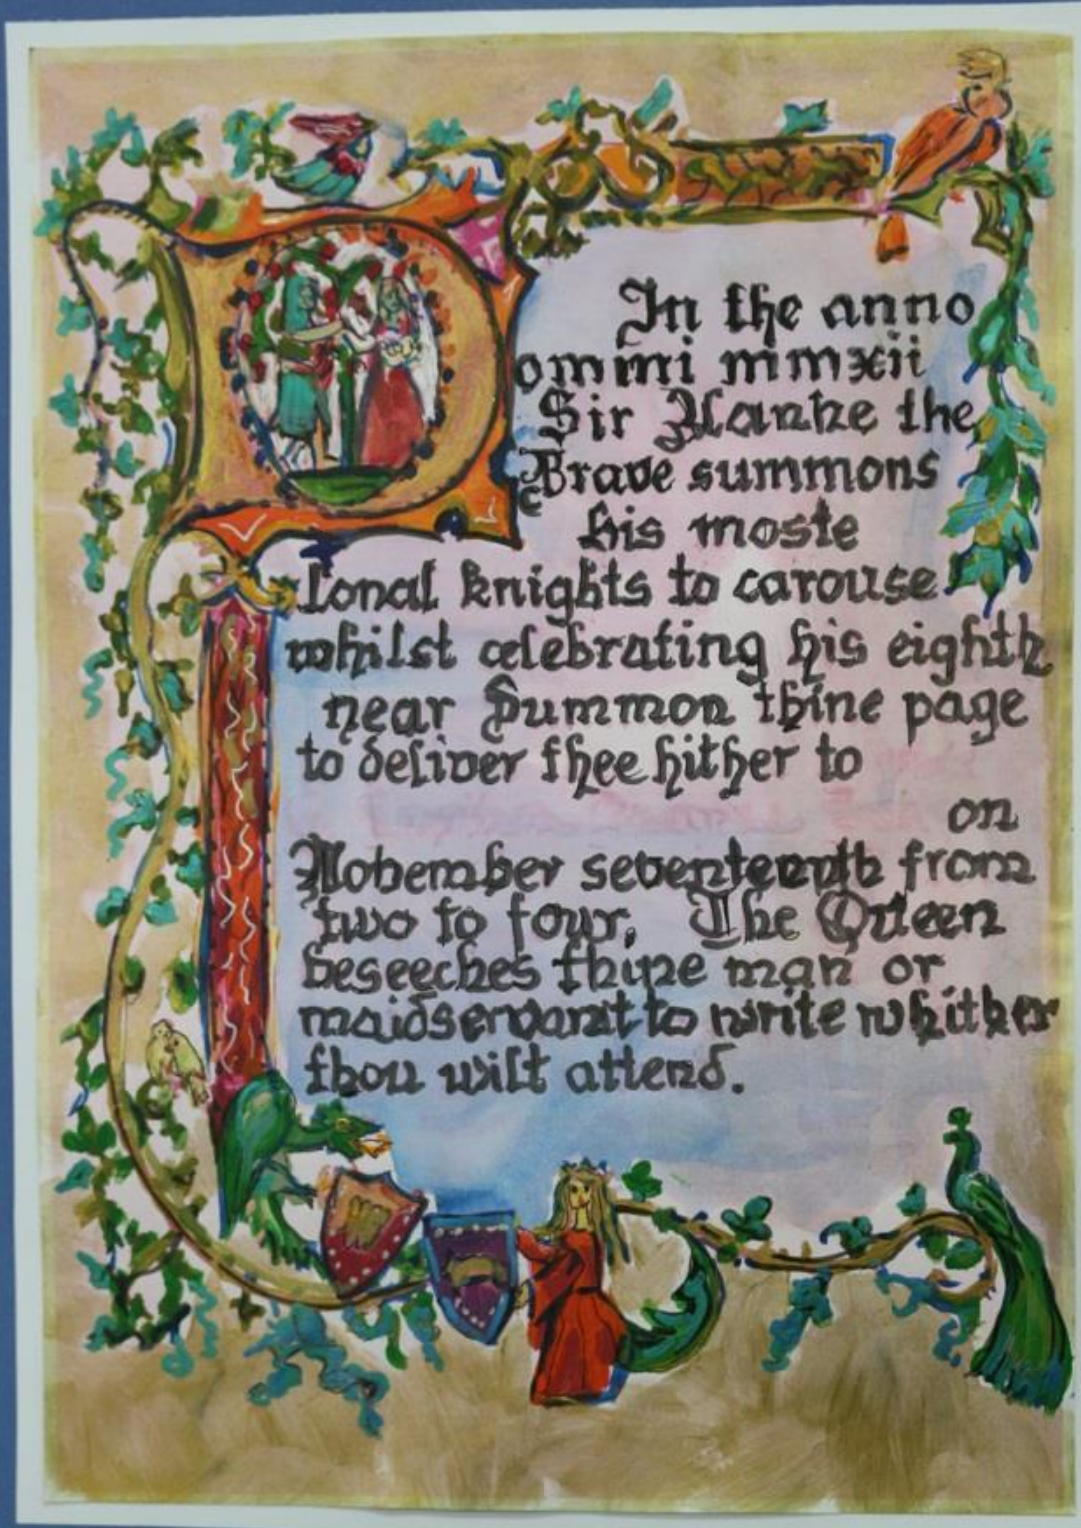 In the anno
omini mmxii
Sir Hanke the
Brave summons
his moste
lonal knights to carouse
whilst celebrating his eighth
near Summon thine page
to deliver thee hither to
on
November seventeenth from
two to four. The Queen
beseeches thine man or
maidservant to write whither
thou wilt attend.